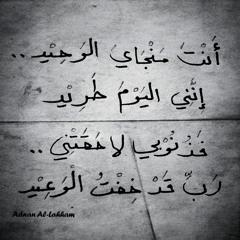 أَنْتَ مَنْجَايَ الوَحِيْد..
إِنَّنِي اليَوْمَ طَرِيْد
فَذُنُوْبِي لاحَقَتْنِي..
رَبِّ قَدْ خِفْتُ الوَعِيْد
Adnan Al-Lahham